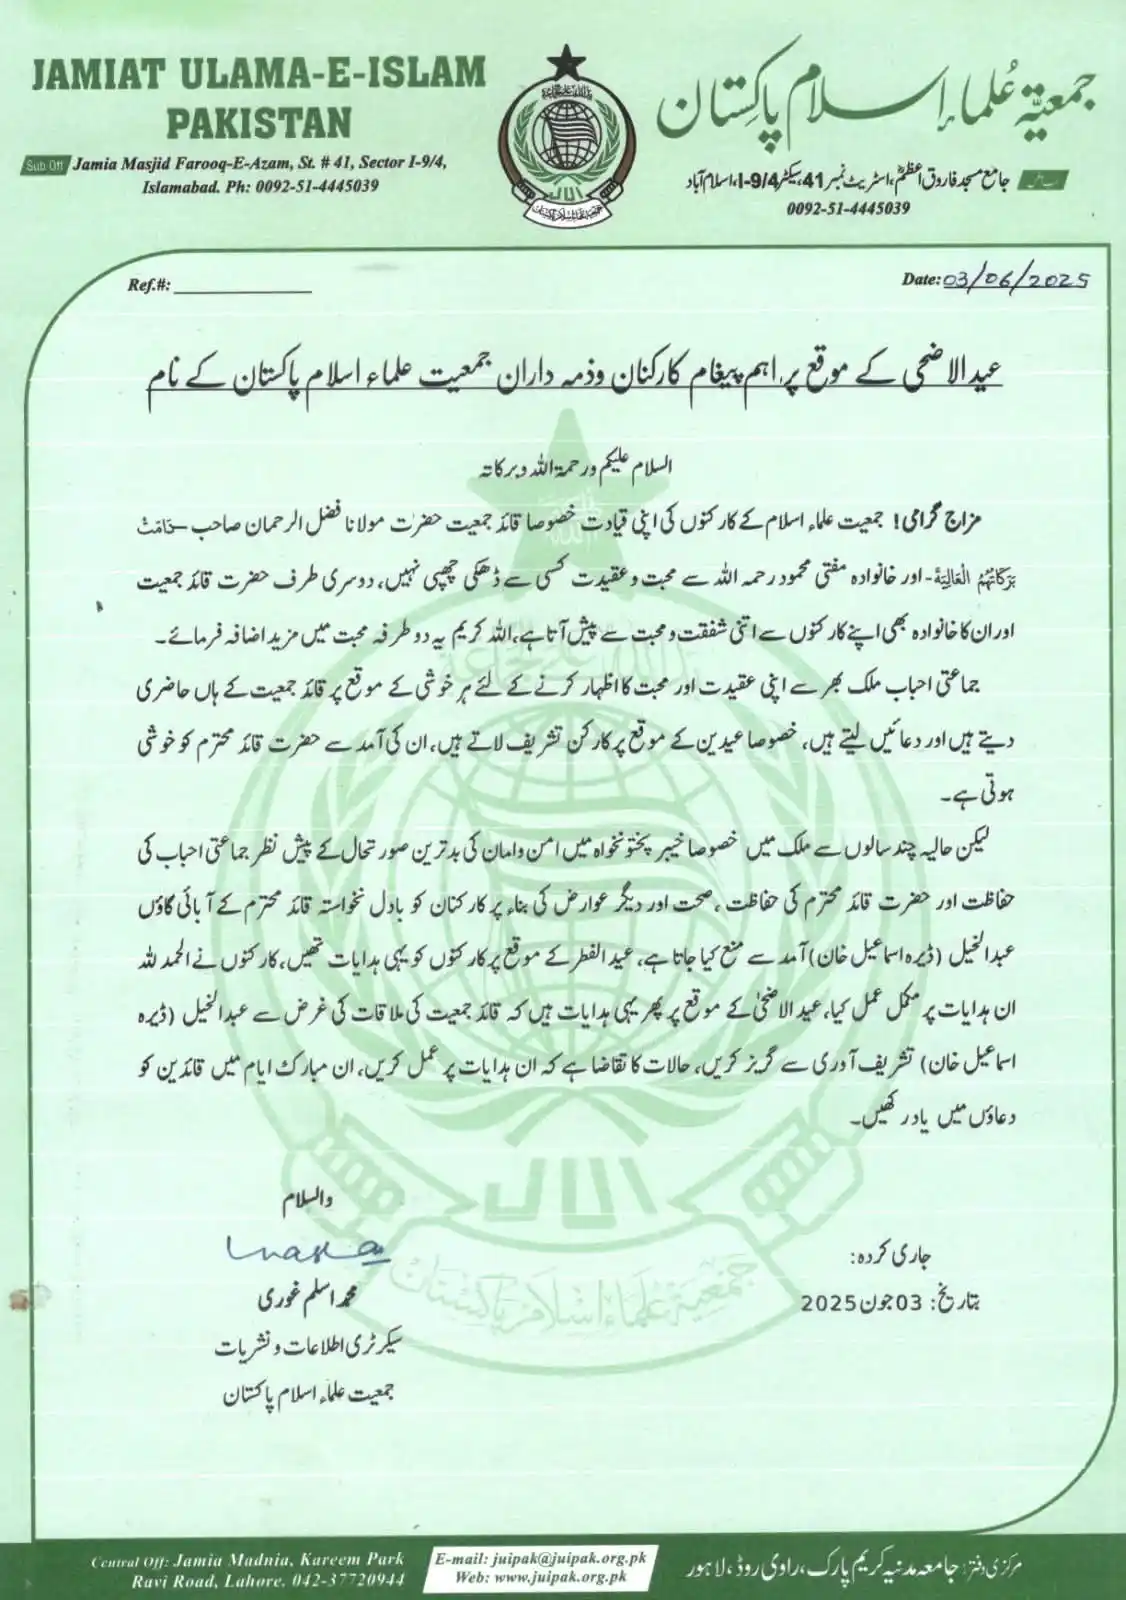 JAMIAT ULAMA-E-ISLAM
PAKISTAN
Sub Off Jamia Masjid Farooq-E-Azam, St. # 41, Sector I-9/4,
Islamabad. Ph: 0092-51-4445039
جمعیۃ علماءِ اسلام پاکستان
جامع مسجد فاروق اعظمؓ، اسٹریٹ نمبر 41، سیکٹر I-9/4، اسلام آباد
0092-51-4445039
جمعیۃ علماء اسلام پاکستان
Ref.#:
Date: 03/06/2025
عید الاضحی کے موقع پر اہم پیغام کارکنان وذمہ داران جمعیت علماء اسلام پاکستان کے نام
السلام علیکم ورحمۃ اللہ وبرکاتہ
مزاج گرامی! جمعیت علماء اسلام کے کارکنوں کی اپنی قیادت خصوصا قائد جمعیت حضرت مولانا فضل الرحمان صاحب -دَامَتْ
بَرَكَاتُهُمُ الْعَالِيَةُ- اور خانوادہ مفتی محمود رحمہ اللہ سے محبت وعقیدت کسی سے ڈھکی چھپی نہیں، دوسری طرف حضرت قائد جمعیت
اور ان کا خانوادہ بھی اپنے کارکنوں سے اتنی شفقت ومحبت سے پیش آتا ہے، اللہ کریم یہ دو طرفہ محبت میں مزید اضافہ فرمائے۔
جماعتی احباب ملک بھر سے اپنی عقیدت اور محبت کا اظہار کرنے کے لئے ہر خوشی کے موقع پر قائد جمعیت کے ہاں حاضری
دیتے ہیں اور دعائیں لیتے ہیں، خصوصا عیدین کے موقع پر کارکن تشریف لاتے ہیں، ان کی آمد سے حضرت قائد محترم کو خوشی
ہوتی ہے۔
لیکن حالیہ چند سالوں سے ملک میں خصوصا خیبر پختونخواہ میں امن وامان کی بدترین صورتحال کے پیش نظر جماعتی احباب کی
حفاظت اور حضرت قائد محترم کی حفاظت، صحت اور دیگر عوارض کی بناء پر کارکنان کو بادل نخواستہ قائد محترم کے آبائی گاؤں
عبدالخیل (ڈیرہ اسماعیل خان) آمد سے منع کیا جاتا ہے، عید الفطر کے موقع پر کارکنوں کو یہی ہدایات تھیں، کارکنوں نے الحمد للہ
ان ہدایات پر مکمل عمل کیا، عید الاضحیٰ کے موقع پر پھر یہی ہدایات ہیں کہ قائد جمعیت کی ملاقات کی غرض سے عبدالخیل (ڈیرہ
اسماعیل خان) تشریف آوری سے گریز کریں، حالات کا تقاضا ہے کہ ان ہدایات پر عمل کریں، ان مبارک ایام میں قائدین کو
دعاؤں میں یاد رکھیں۔
والسلام
محمد اسلم غوری
سیکرٹری اطلاعات و نشریات
جمعیت علماء اسلام پاکستان
جاری کردہ:
بتاریخ: 03 جون 2025
Central Off: Jamia Madnia, Kareem Park
Ravi Road, Lahore. 042-37720944
E-mail: juipak@juipak.org.pk
Web: www.juipak.org.pk
مرکزی دفتر: جامعہ مدنیہ کریم پارک، راوی روڈ، لاہور